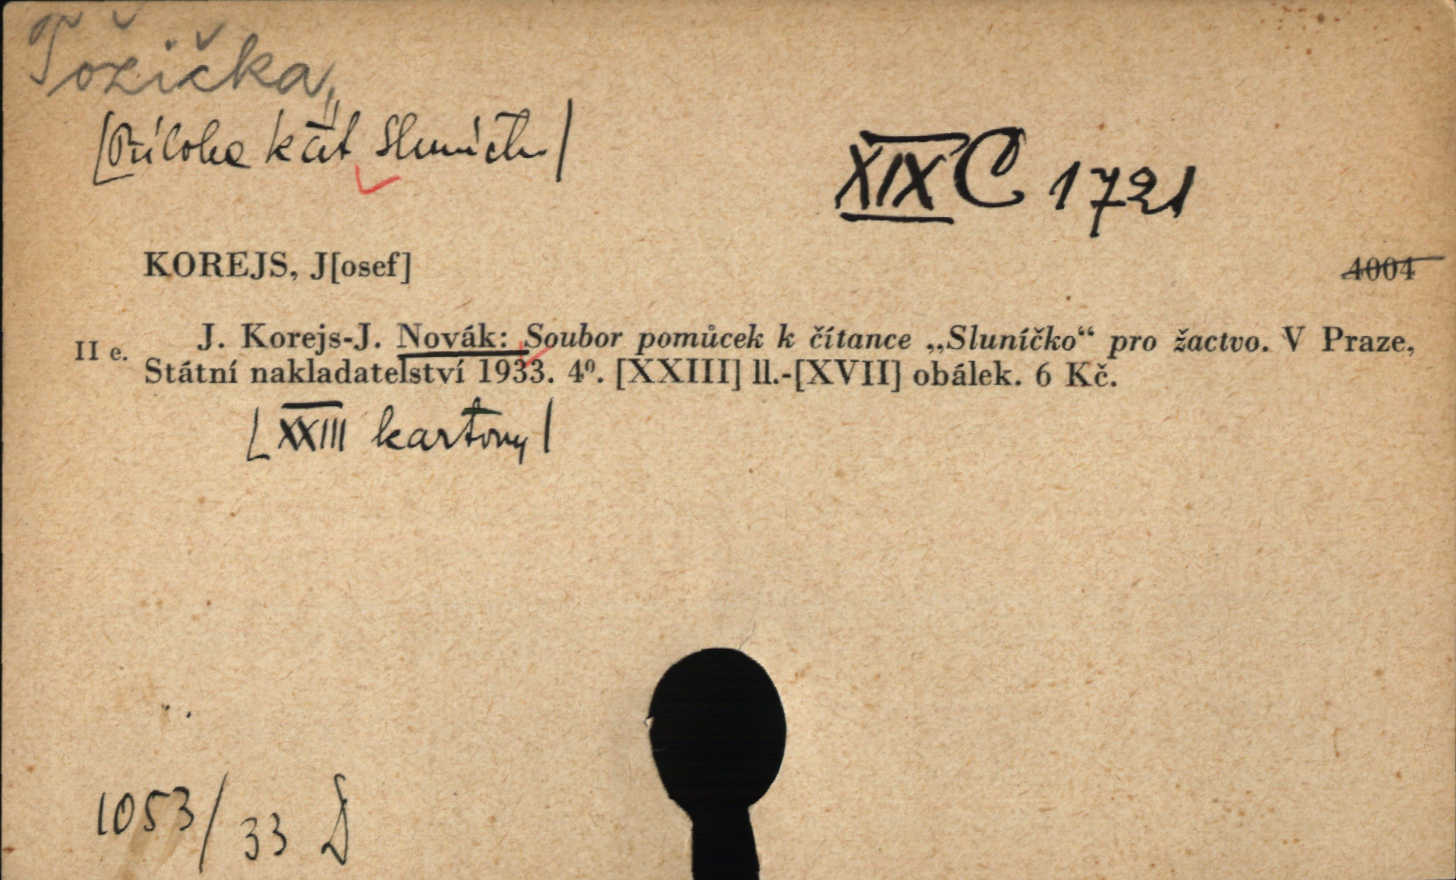 Požička
[Příloha k čít Sluníčku]
XIX C 1721
KOREJS, J[osef]
4004
II e. J. Korejs-J. Novák: Soubor pomůcek k čítance „Sluníčko“ pro žactvo. V Praze,
Státní nakladatelství 1933. 4⁰. [XXIII] ll.-[XVII] obálek. 6 Kč.
[XXIII kartony]
1053/33 D